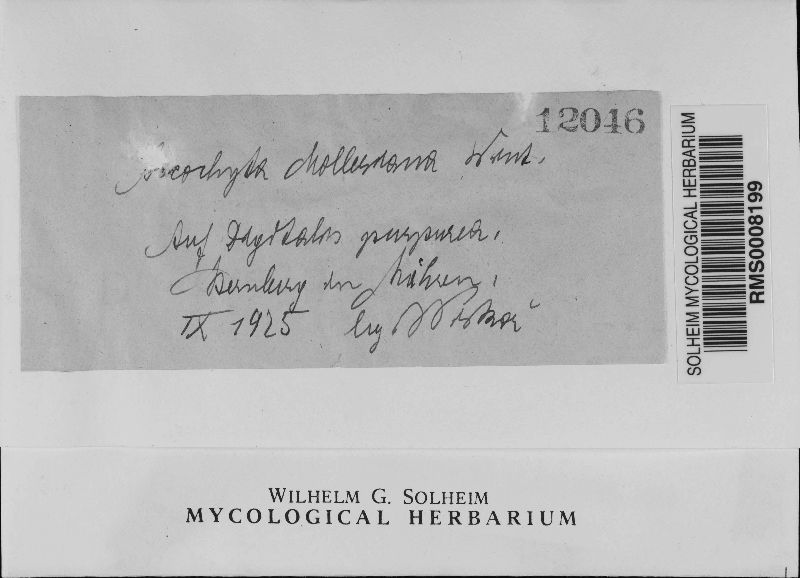 12046
Ascochyta Molleriana Wint.
Auf Digitalis purpurea.
Sternberg in Mähren.
IX 1925 leg
SOLHEIM MYCOLOGICAL HERBARIUM
RMS0008199
WILHELM G. SOLHEIM
MYCOLOGICAL HERBARIUM